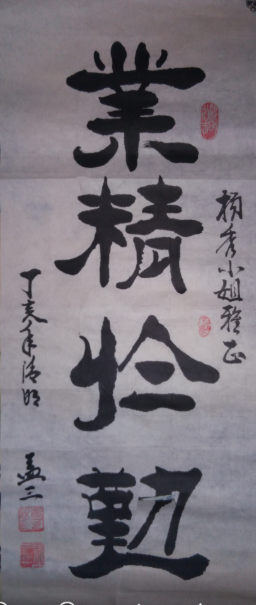 楊秀小姐雅正
業精於勤
丁亥年清明